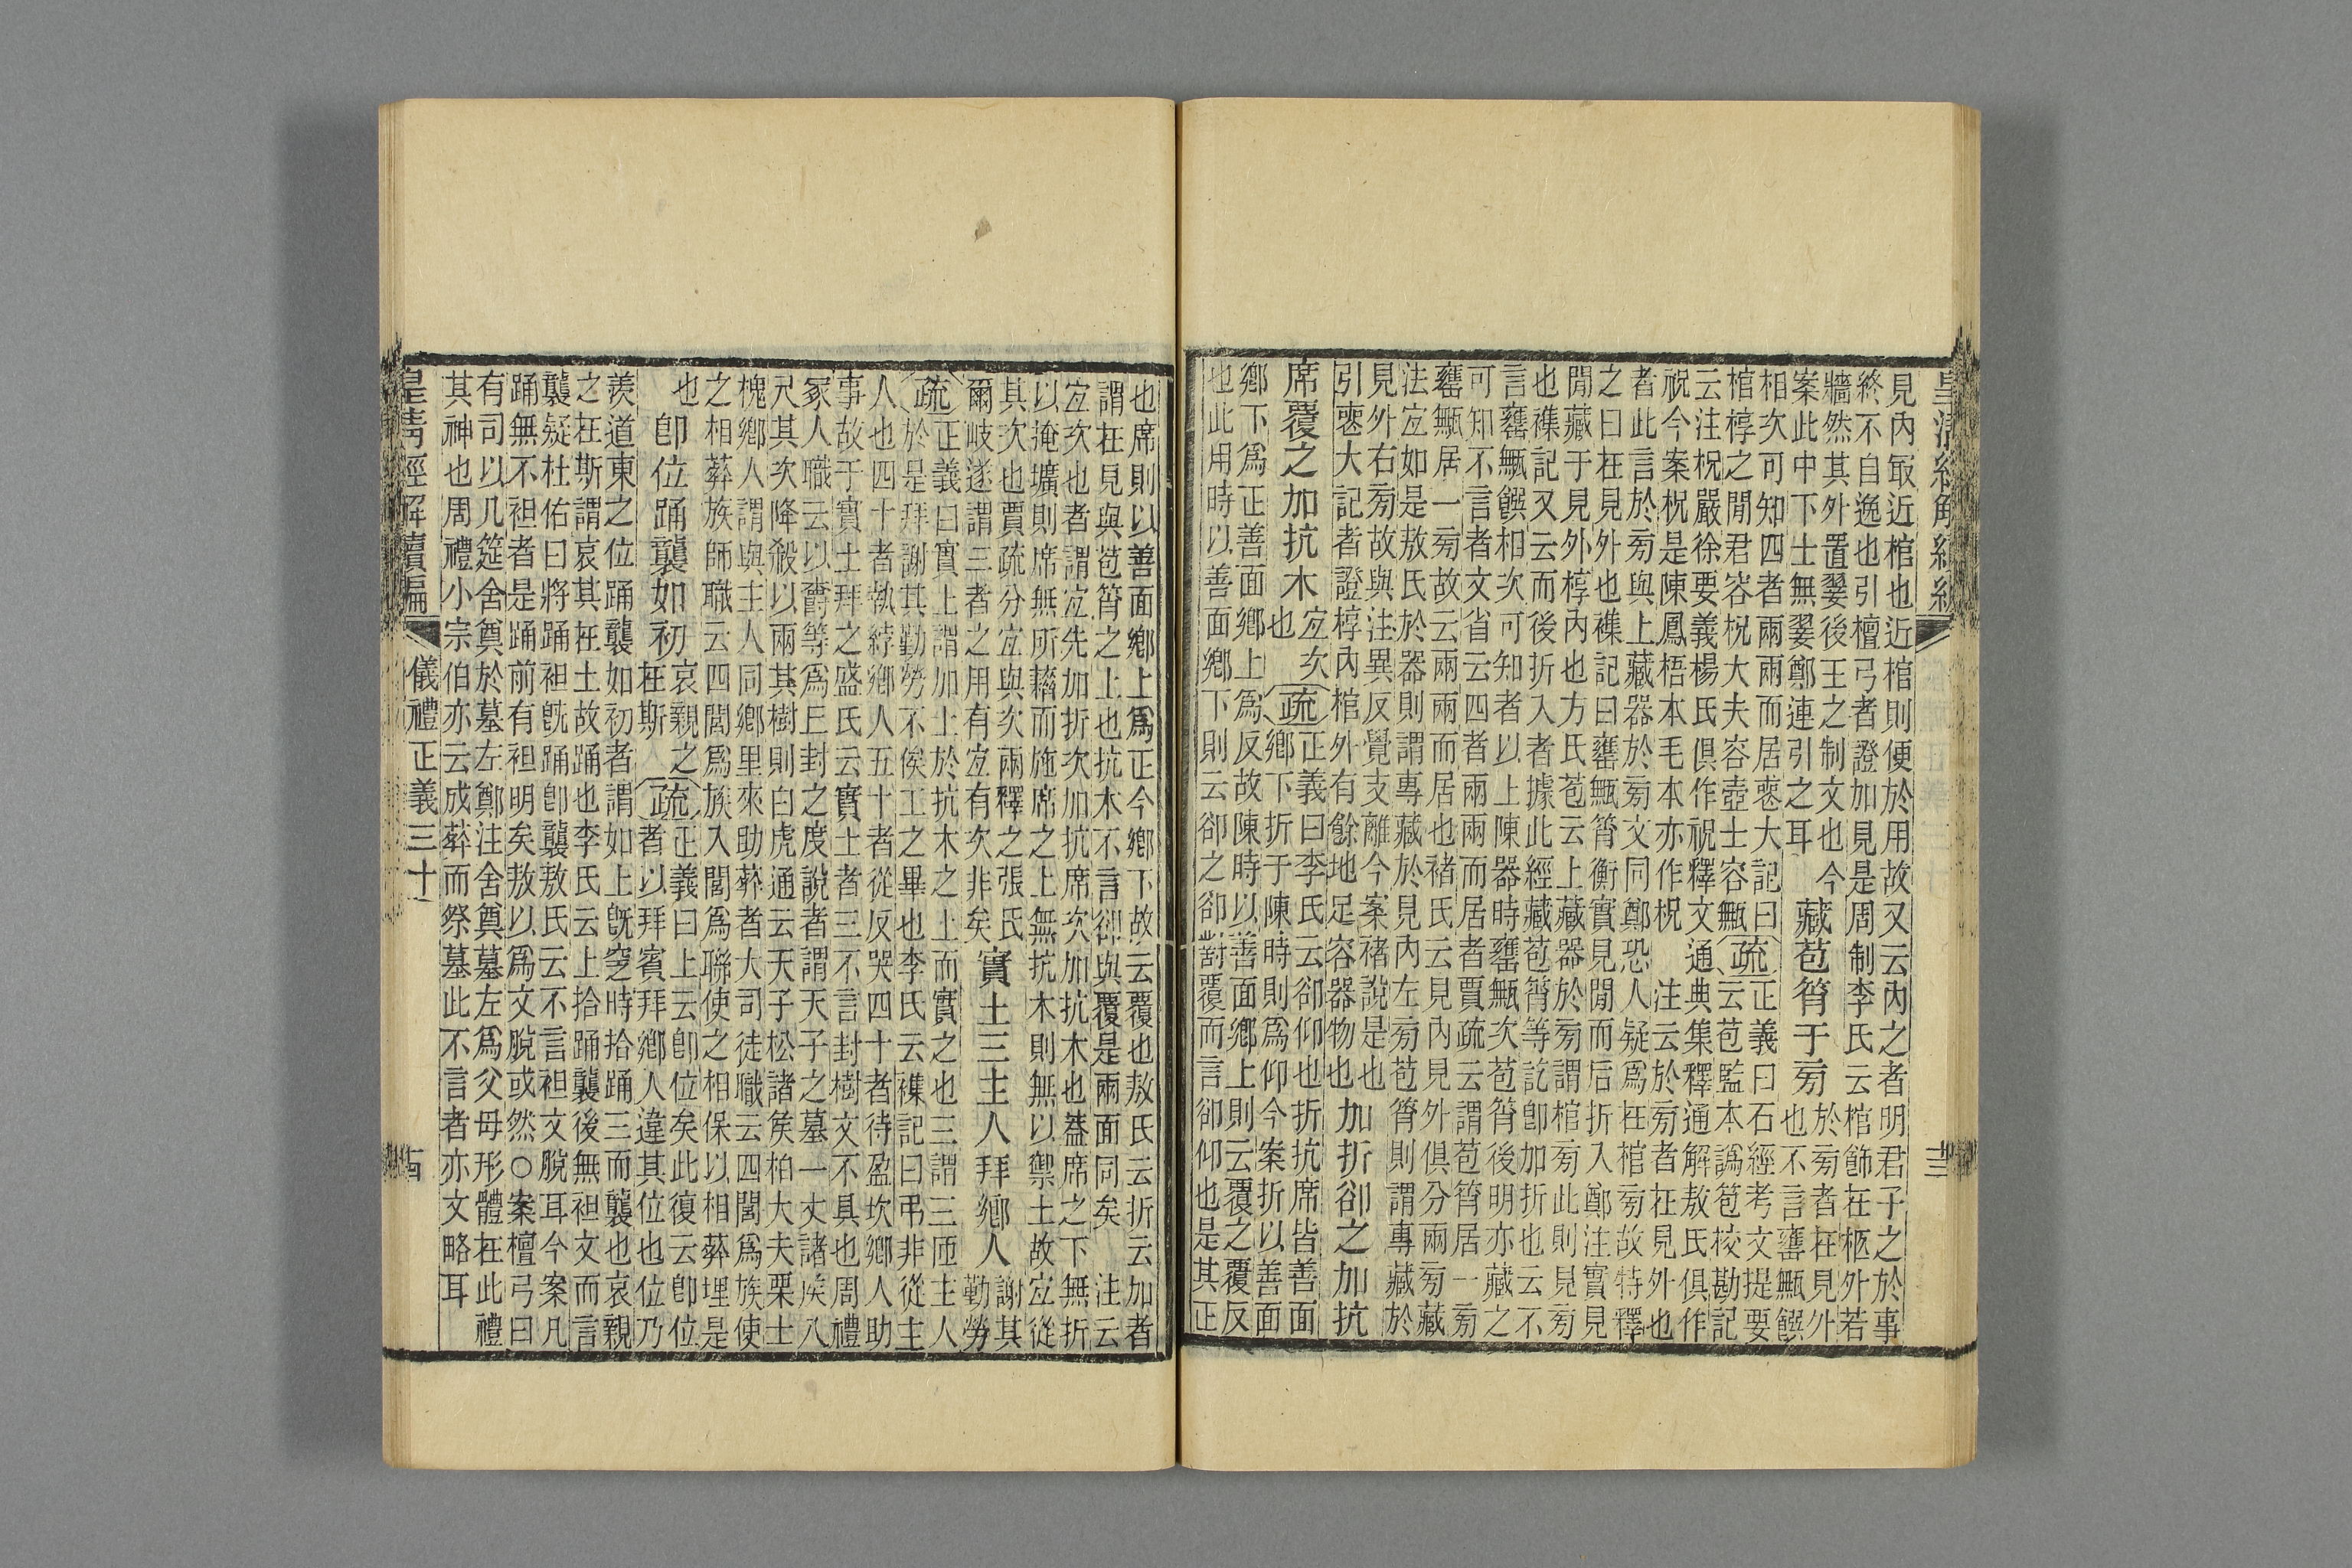 見內㝡近棺也近棺則便於用故又云內之者明君子之於事
終不自逸也引檀弓者證加見是周制李氏云棺飾在柩外若
牆然其外置翣後王之制文也今
案此中下士無翣鄭連引之耳
藏苞筲于旁
於旁者在見外
也不言甕甒饌
相次可知四者兩兩而居喪大記曰
棺椁之閒君容柷大夫容壺士容甒
疏
正義曰石經考文提要
云苞監本譌苞校勘記
云注柷嚴徐要義楊氏俱作祝釋文通典集釋通解敖氏俱作
祝今案柷是陳鳳梧本毛本亦作柷 注云於旁者在見外也
者此言於旁與上藏器於旁文同鄭恐人疑爲在棺旁故特釋
之曰在見外也襍記曰甕甒筲衡實見閒而后折入鄭注實見
閒藏于見外椁內也方氏苞云上藏器於旁謂棺旁此則見旁
也襍記又云而後折入者據此經藏苞筲等訖卽加折也云不
言甕甒饌相次可知者以上陳器時甕甒次苞筲後明亦藏之
可知不言者文省云四者兩兩而居者賈疏云謂苞筲居一旁
甕甒居一旁故云兩兩而居也褚氏云見內見外俱分兩旁藏
法㝎如是敖氏於器則謂專藏於見內左旁苞筲則謂專藏於
見外右旁故與注異反覺支離今案褚說是也
引喪大記者證椁內棺外有餘地足容器物也
加折卻之加抗
席覆之加抗木
㝎次
也
疏
正義曰李氏云卻仰也折抗席皆善面
鄉下折于陳時則爲仰今案折以善面
鄉下爲正善面鄉上爲反故陳時以善面鄉上則云覆之覆反
也此用時以善面鄉下則云卻之卻對覆而言卻仰也是其正
也席則以善面鄉上爲正今鄉下故云覆也敖氏云折云加者
謂在見與苞筲之上也抗木不言卻與覆是兩面同矣 注云
㝎次也者謂㝎先加折次加抗席次加抗木也葢席之下無折
以掩壙則席無所藉而施席之上無抗木則無以禦土故㝎從
其次也賈疏分㝎與次兩釋之張氏
爾岐遂謂三者之用有㝎有次非矣
實土三主人拜鄉人
謝其
勤勞
疏
正義曰實上謂加土於抗木之上而實之也三謂三匝主人
於是拜謝其勤勞不俟工之畢也李氏云襍記曰弔非從主
人也四十者執綍鄉人五十者從反哭四十者待盈坎鄉人助
事故于實土拜之盛氏云實土者三不言封樹文不具也周禮
冢人職云以爵等爲丘封之度說者謂天子之墓一丈諸侯八
尺其次降殺以兩其樹則白虎通云天子松諸侯柏大夫栗士
槐鄉人謂與主人同鄉里來助葬者大司徒職云四閭爲族使
之相葬族師職云四閭爲族八閭爲聯使之相保以相葬埋是
也
卽位踊襲如初
哀親之
在斯
疏
正義曰上云卽位矣此復云卽位
者以拜賓拜鄉人違其位也位乃
羨道東之位踊襲如初者謂如上旣窆時拾踊三而襲也哀親
之在斯謂哀其在土故踊也李氏云上拾踊襲後無袒文而言
襲疑杜佑曰將踊袒旣踊卽襲敖氏云不言袒文脫耳今案凡
踊無不袒者是踊前有袒明矣敖以爲文脫或然○案檀弓曰
有司以几筵舍奠於墓左鄭注舍奠墓左爲父母形體在此禮
其神也周禮小宗伯亦云成葬而祭墓此不言者亦文略耳
皇清經解續編 儀禮正義三十